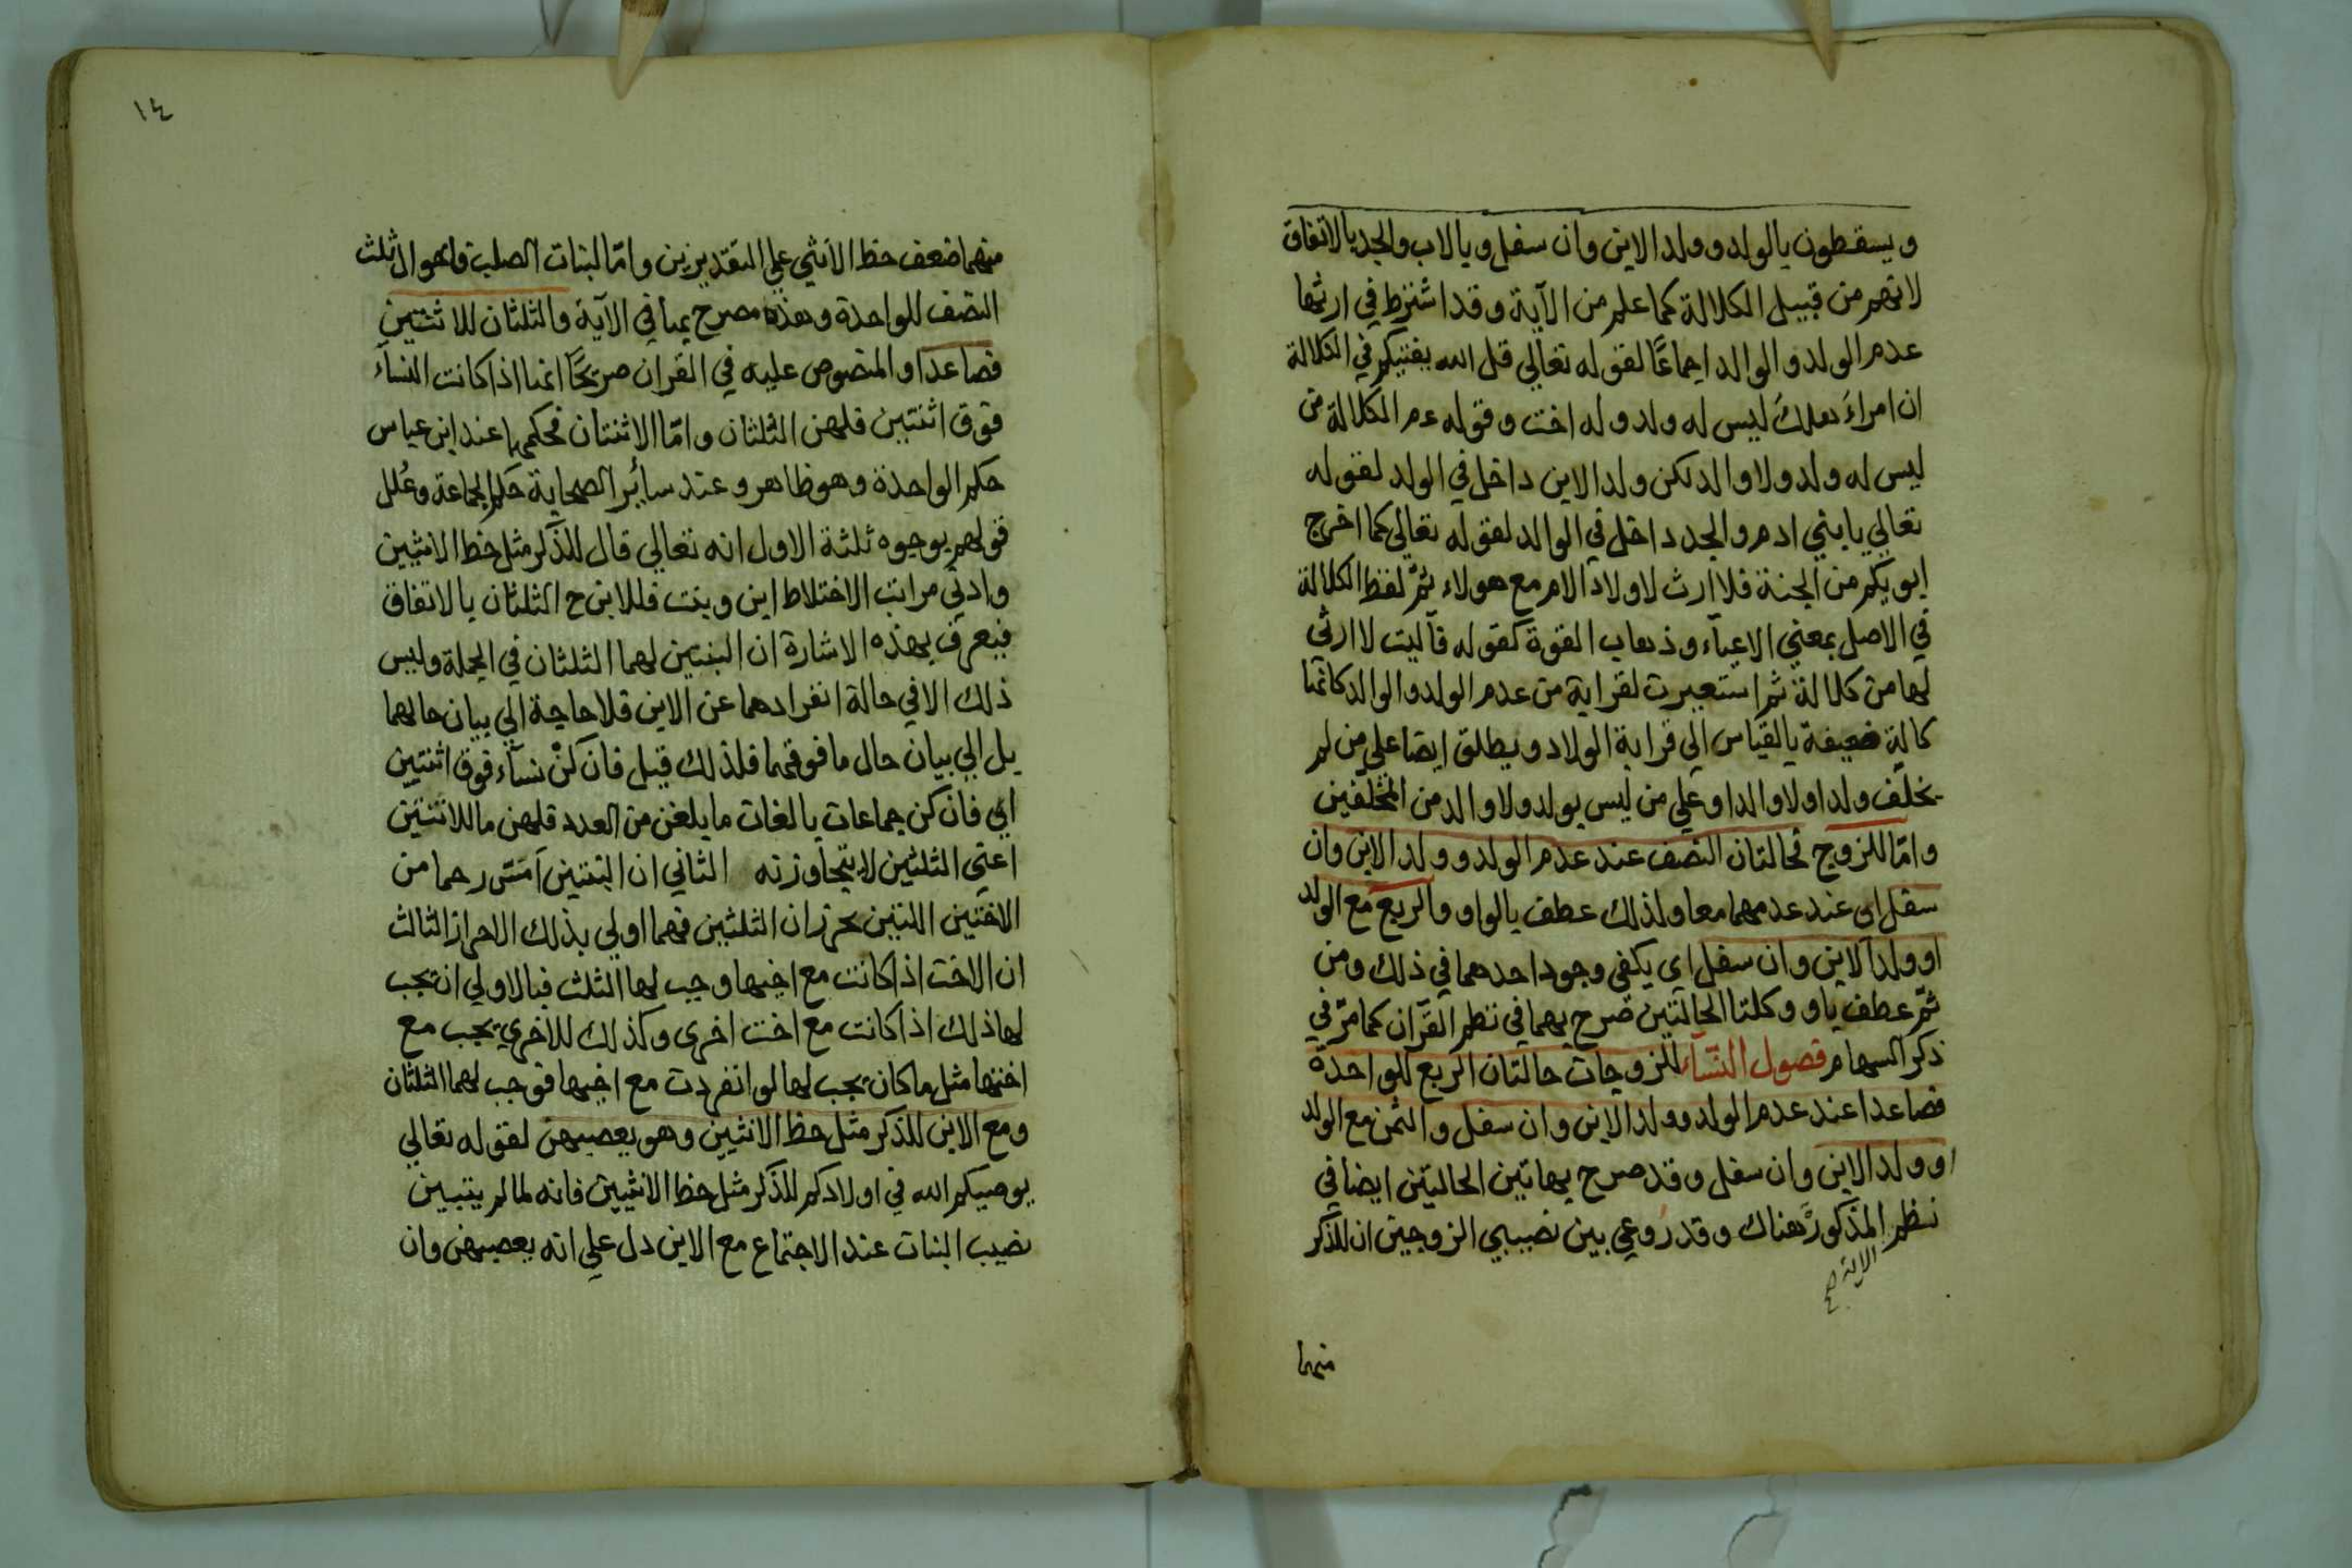 ويسقطون بالولد وولد الابن وان سفل وبالاب والجد بالاتفاق
لانهم من قبيل الكلالة كما علم من الآية وقد اشترط في ارثها
عدم الولد والوالد اجماعًا لقوله تعالي قل الله يفتيكم في الكلالة
ان امراءَ هلك ليس له ولد وله اخت وقوله عم الكلالة من
ليس له ولد ولا والد لكن ولد الابن داخل في الولد لقوله
تعالي يا بني ادم والجد داخل في الوالد لقوله تعالى كما اخرج
ابويكم من الجنة فلا ارث لاولاد الام مع هولاء ثمّ لفظ الكلالة
في الاصل بمعني الاعيآء وذهاب القوة كقوله فآليت لا ارثي
لها من كلالة ثم استعيرت لقرابة من عدم الولد والوالد كانها
كالةٍ ضعيفة بالقياس الى قرابة الولاد ويطلق ايضا علي من لم
يخلّف ولدا ولا والدا وعلي من ليس بولد ولا والد من المخلّفين
وامّا للزوج فحالتان النصف عند عدم الولد وولد الابن وان
سفل اى عند عدمهما معا ولذلك عطف بالواو والربع مع الولد
او ولد الابن وان سفل اي يكفي وجود احدهما في ذلك ومن
ثمّ عطف باو وكلتا الحالتين صرح بهما في نظم القرآن كما مرّ في
ذكر السهام فصول النسآء للزوجات حالتان الربع للواحدة
فصاعدا عند عدم الولد وولد الابن وان سفل والثمن مع الولد
او ولد الابن وان سفل وقد صرح بهاتين الحالتين ايضا في
نظم المذكور هناك وقد رُوعي بين نصيبي الزوجين ان للذكر
الاية صح
منهما
١٤
منهما ضعف حظ الانثي علي التقديرين وامّا لبنات الصلب فاحوال ثلث
النصف للواحدة وهذه مصرح بها في الآية والثلثان للاثنتين
فصاعدا والمنصوص عليه في القران صريحًا انما اذا كانت النسآء
فوق اثنتين فلهن الثلثان وامّا الاثنتان فحكمهما عند ابن عباس
حكم الواحدة وهو ظاهر وعند سائر الصحابة حكم الجماعة وعُلل
قولهم بوجوه ثلثة الاول انه تعالي قال للذّكر مثل حظ الانثيين
وادني مراتب الاختلاط ابن وبنت فللابن ح الثلثان بالاتفاق
فيعرف بهذه الاشارة ان البنتين لهما الثلثان في الجملة وليس
ذلك الا في حالة انفرادهما عن الابن فلا حاجة الي بيان حالهما
بل الي بيان حال ما فوقهما فلذلك قيل فان كنّ نسآء فوق اثنتين
اي فان كن جماعات بالغات ما بلغن من العدد فلهن ما للاثنتين
اعني الثلثين لا يتجاوزنه الثاني ان البنتين اَمَسّ رحما من
الاختين اللتين تحرزان الثلثين فهما اولي بذلك الاحراز الثالث
ان الاخت اذا كانت مع اخيها وجب لها الثلث فبالاولي ان يجب
لها ذلك اذا كانت مع اخت اخرى وكذلك للاخري يجب مع
اختها مثل ما كان يجب لها لو انفردت مع اخيها فوجب لهما الثلثان
ومع الابن للذكر مثل حظ الانثيين وهو يعصبهن لقوله تعالي
يوصيكم الله في اولادكم للذكر مثل حظ الانثيين فانه لما لم يتبين
نصيب البنات عند الاجتماع مع الابن دل علي انه يعصبهن وان